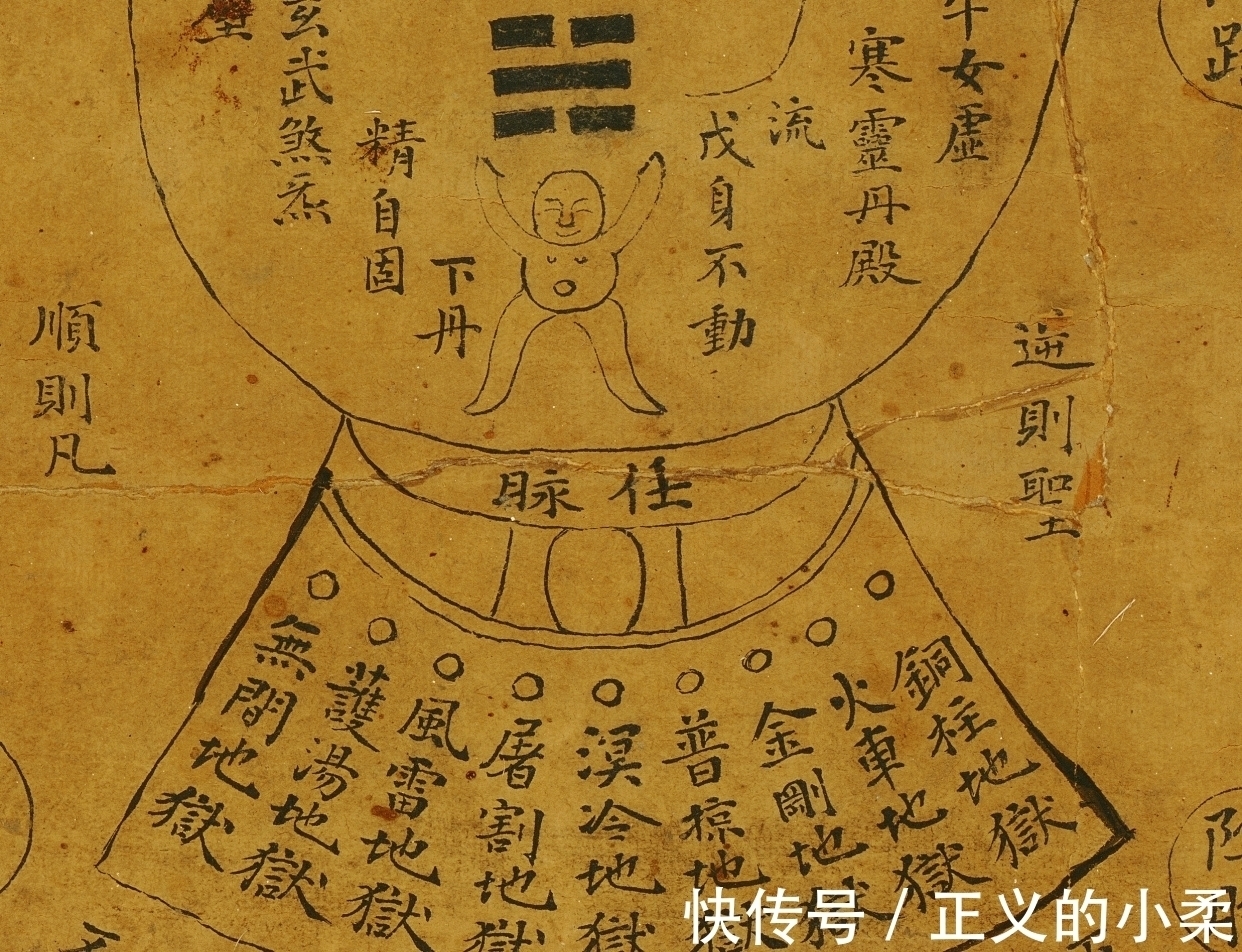 牛女虛
寒靈丹殿
流
戊身不動
下丹
精自固
玄武煞炁
逆則聖
順則凡
任脉
銅柱地獄
火車地獄
金剛地獄
普掠地
溟冷地獄
屠割地獄
風雷地獄
護湯地獄
無間地獄
快传号 / 正义的小柔